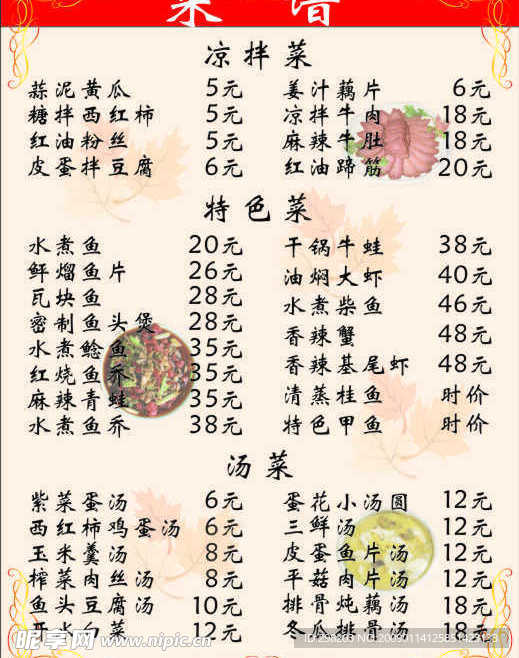 菜谱
凉拌菜
蒜泥黄瓜 5元
糖拌西红柿 5元
红油粉丝 5元
皮蛋拌豆腐 6元
姜汁藕片 6元
凉拌牛肉 18元
麻辣牛肚 18元
红油蹄筋 20元
特色菜
水煮鱼 20元
鲜熘鱼片 26元
瓦块鱼 28元
密制鱼头煲 28元
水煮鲶鱼 35元
红烧鱼乔 35元
麻辣青蛙 35元
水煮鱼乔 38元
干锅牛蛙 38元
油焖大虾 40元
水煮柴鱼 46元
香辣蟹 48元
香辣基尾虾 48元
清蒸桂鱼 时价
特色甲鱼 时价
汤菜
紫菜蛋汤 6元
西红柿鸡蛋汤 6元
玉米羹汤 8元
榨菜肉丝汤 8元
鱼头豆腐汤 10元
开水白菜 12元
蛋花小汤圆 12元
三鲜汤 12元
皮蛋鱼片汤 12元
平菇肉片汤 12元
排骨炖藕汤 18元
冬瓜排骨汤 18元
昵享网 www.nipic.cn